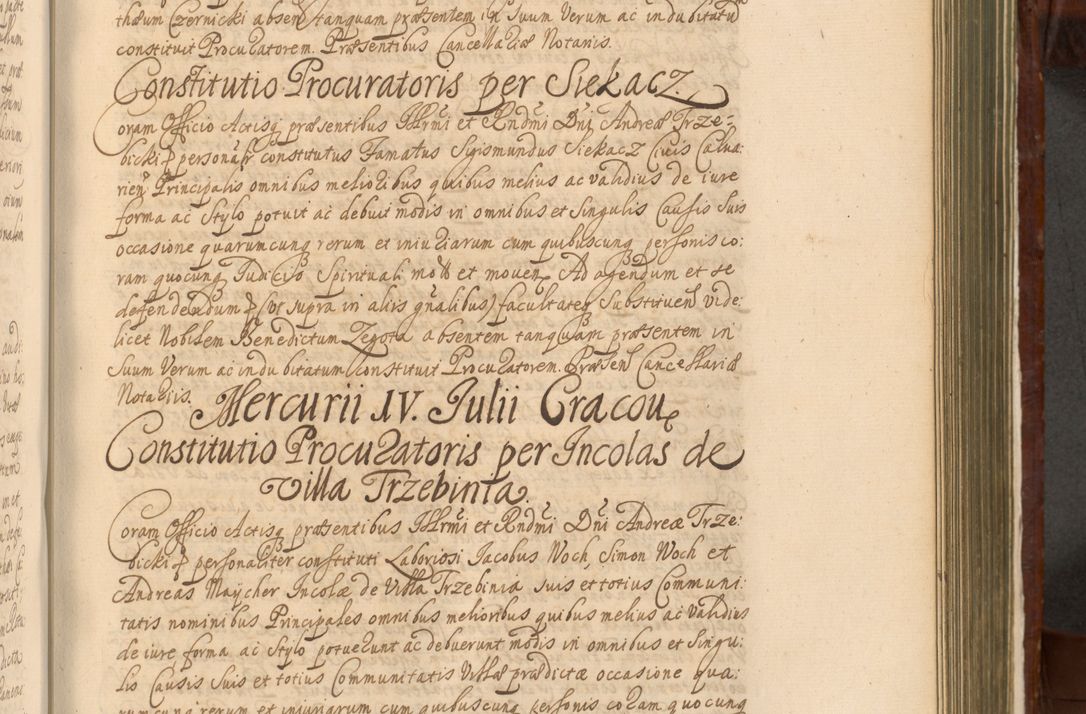 thæum Czernicki absen tanquam præsentem in Suum Verum ac indubitatū
constituit Procuratorem. Præsentibus Cancellariæ Notariis.
Constitutio Procuratoris per Siekacz.
Coram Officio Actisq præsentibus Illrmi et Rndmi Dni Andreæ Trze=
bicki p personalr constitutus Famatus Sigismundus Siekacz Civis Calva:
rien Principalis omnibus melioribus quibus melius ac validius de iure
forma ac stylo potuit ac debuit modis in omnibus et singulis Causis suis
occasione quarumcunq rerum et iniuriarum cum quibuscunq personis co:
ram quocunq Iudicio Spirituali mot et moven Ad agendum et se
defendendum p (ut supra in aliis qnalibus) facultatem Substituen vide:
licet Nobilem Benedictum Zegota absentem tanquam præsentem in
Suum Verum ac indubitatum constituit Procuratorem. Præsen Cancellariæ
Notariis.
Mercurii IV. Julii Cracou
Constitutio Procuratoris per Incolas de
Villa Trzebinia.
Coram Officio Actisq præsentibus Illrmi et Rndmi Dni Andreæ Trze:
bicki p personaliter constituti Laboriosi Jacobus Woch, Simon Woch et
Andreas Maycher Incolæ de Villa Trzebinia suis et totius Communi:
tatis nominibus Principales omnibus melioribus quibus melius ac validius
de iure forma ac stylo potuerunt ac debuerunt modis in omnibus et singu:
lis Causis suis et totius Communitatis Villæ prædictæ occasione qua:
rum cunq rerum et iniuriarum cum quibuscunq personis coram quocunq